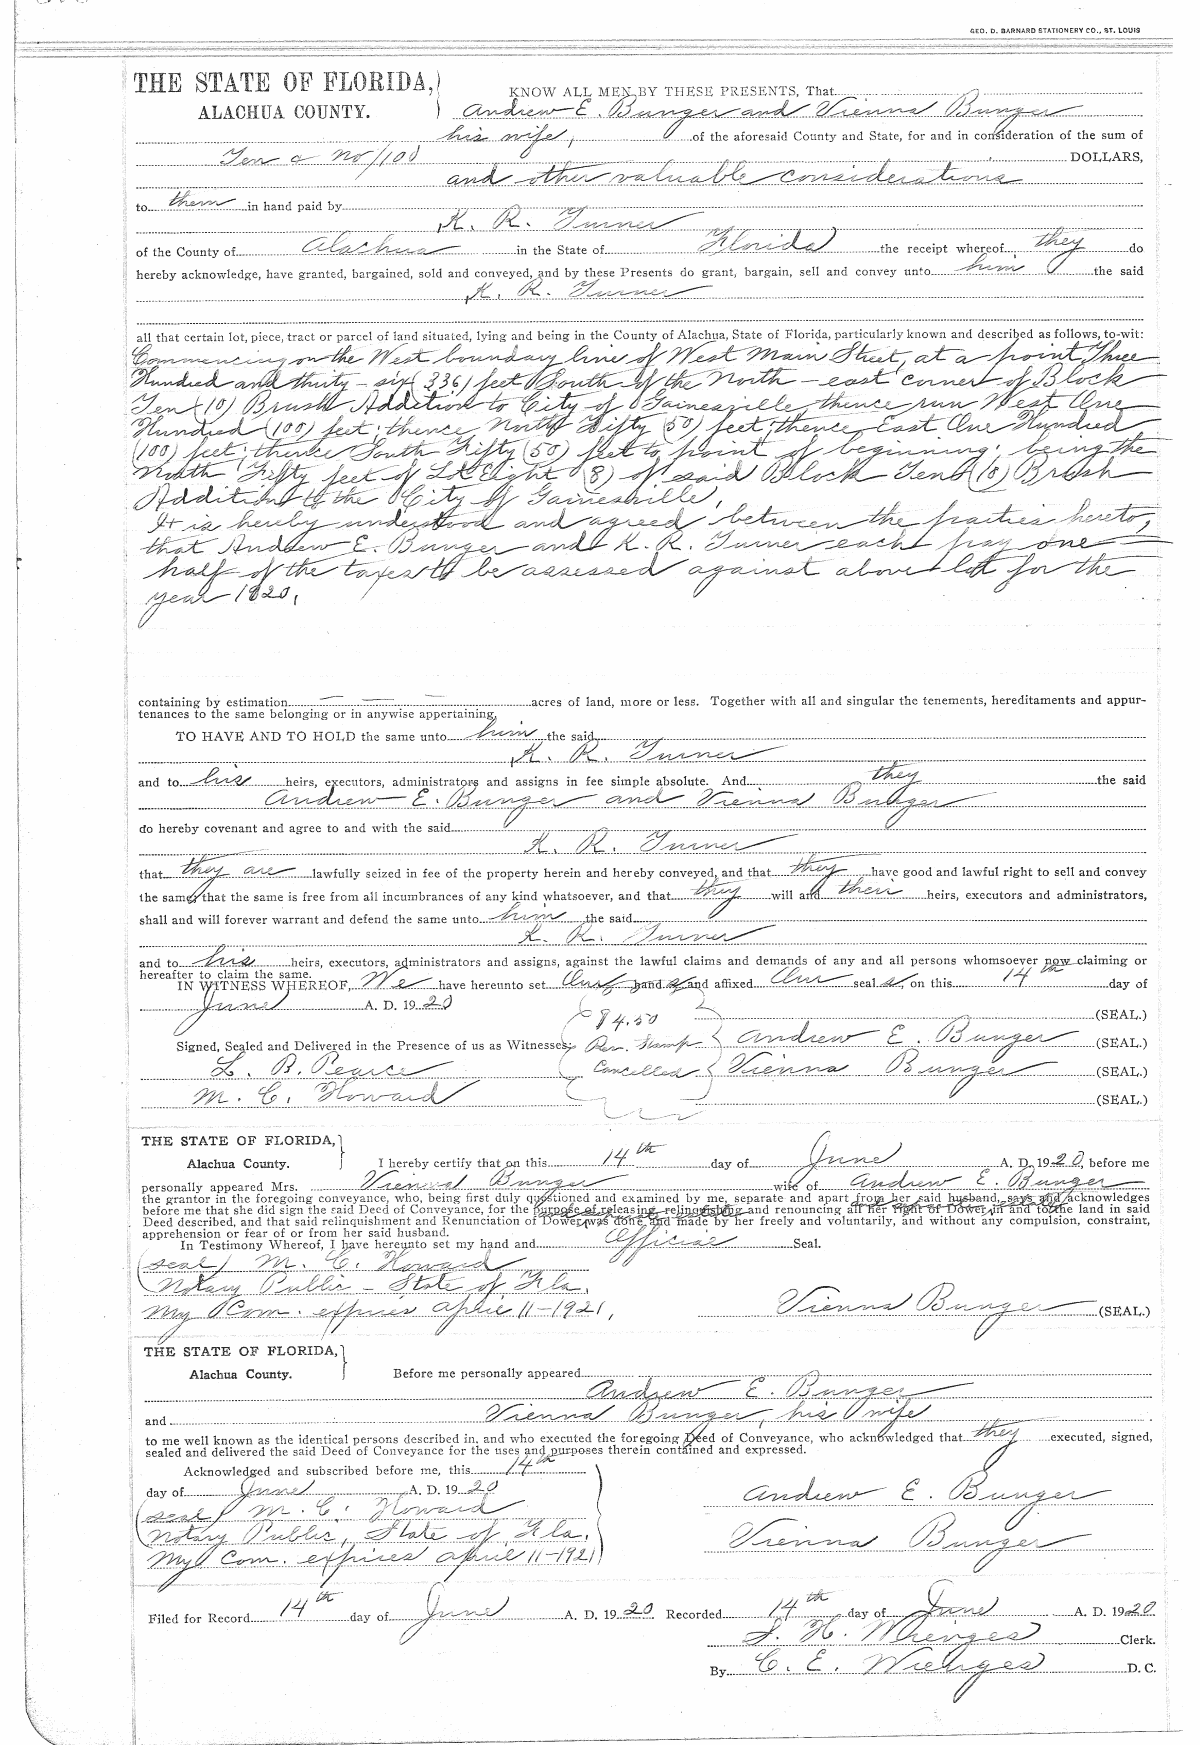 GEO. D. BARNARD STATIONERY CO., ST. LOUIS
THE STATE OF FLORIDA,
ALACHUA COUNTY.
KNOW ALL MEN BY THESE PRESENTS, That
Andrew E. Bunger and Vienna Bunger
his wife, of the aforesaid County and State, for and in consideration of the sum of
Ten & no/100 DOLLARS,
and other valuable considerations
to them in hand paid by
K. R. Turner
of the County of Alachua in the State of Florida the receipt whereof they do
hereby acknowledge, have granted, bargained, sold and conveyed, and by these Presents do grant, bargain, sell and convey unto him the said
K. R. Turner
all that certain lot, piece, tract or parcel of land situated, lying and being in the County of Alachua, State of Florida, particularly known and described as follows, to-wit:
Commencing on the West boundary line of West Main Street, at a point Three
Hundred and thirty-six (336) feet South of the North-east corner of Block
Ten (10) Brush Addition to City of Gainesville, thence run West One
Hundred (100) feet; thence North Fifty (50) feet; thence East One Hundred
(100) feet; thence South Fifty (50) feet to point of beginning; being the
North Fifty feet of Lot Eight (8) of said Block Ten (10) Brush
Addition to the City of Gainesville,
It is hereby understood and agreed between the parties hereto,
that Andrew E. Bunger and K. R. Turner each pay one
half of the taxes to be assessed against above lot for the
year 1920,
containing by estimation — — — acres of land, more or less. Together with all and singular the tenements, hereditaments and appur-
tenances to the same belonging or in anywise appertaining,
TO HAVE AND TO HOLD the same unto him the said
K. R. Turner
and to his heirs, executors, administrators and assigns in fee simple absolute. And they the said
Andrew E. Bunger and Vienna Bunger
do hereby covenant and agree to and with the said
K. R. Turner
that they are lawfully seized in fee of the property herein and hereby conveyed, and that they have good and lawful right to sell and convey
the same, that the same is free from all incumbrances of any kind whatsoever, and that they will and their heirs, executors and administrators,
shall and will forever warrant and defend the same unto him the said
K. R. Turner
and to his heirs, executors, administrators and assigns, against the lawful claims and demands of any and all persons whomsoever now claiming or
hereafter to claim the same.
IN WITNESS WHEREOF, We have hereunto set Our hand s and affixed Our seal s, on this 14th day of
June A. D. 1920
(SEAL.)
$4.50
Signed, Sealed and Delivered in the Presence of us as Witnesses; Rev. Stamp Andrew E. Bunger (SEAL.)
L. B. Pearce Cancelled Vienna Bunger (SEAL.)
M. C. Howard (SEAL.)
THE STATE OF FLORIDA,
Alachua County. I hereby certify that on this 14th day of June A. D. 1920, before me
personally appeared Mrs. Vienna Bunger wife of Andrew E. Bunger
the grantor in the foregoing conveyance, who, being first duly questioned and examined by me, separate and apart from her said husband, says and acknowledges
before me that she did sign the said Deed of Conveyance, for the purpose of releasing, relinquishing and renouncing all her right of Dower, in and to the land in said
Deed described, and that said relinquishment and Renunciation of Dower, was done and made by her freely and voluntarily, and without any compulsion, constraint,
apprehension or fear of or from her said husband.
In Testimony Whereof, I have hereunto set my hand and Official Seal.
(seal) M. C. Howard
Notary Public - State of Fla.
My Com. expires April 11-1921,
Vienna Bunger (SEAL.)
THE STATE OF FLORIDA,
Alachua County. Before me personally appeared
Andrew E. Bunger
and Vienna Bunger, his wife
to me well known as the identical persons described in, and who executed the foregoing Deed of Conveyance, who acknowledged that they executed, signed,
sealed and delivered the said Deed of Conveyance for the uses and purposes therein contained and expressed.
Acknowledged and subscribed before me, this 14th
day of June A. D. 1920
(seal) M. C. Howard
Notary Public, State of Fla.
My Com. expires April 11-1921
Andrew E. Bunger
Vienna Bunger
Filed for Record 14th day of June A. D. 1920 Recorded 14th day of June A. D. 1920
S. H. Wienges Clerk.
By C. E. Wienges D. C.